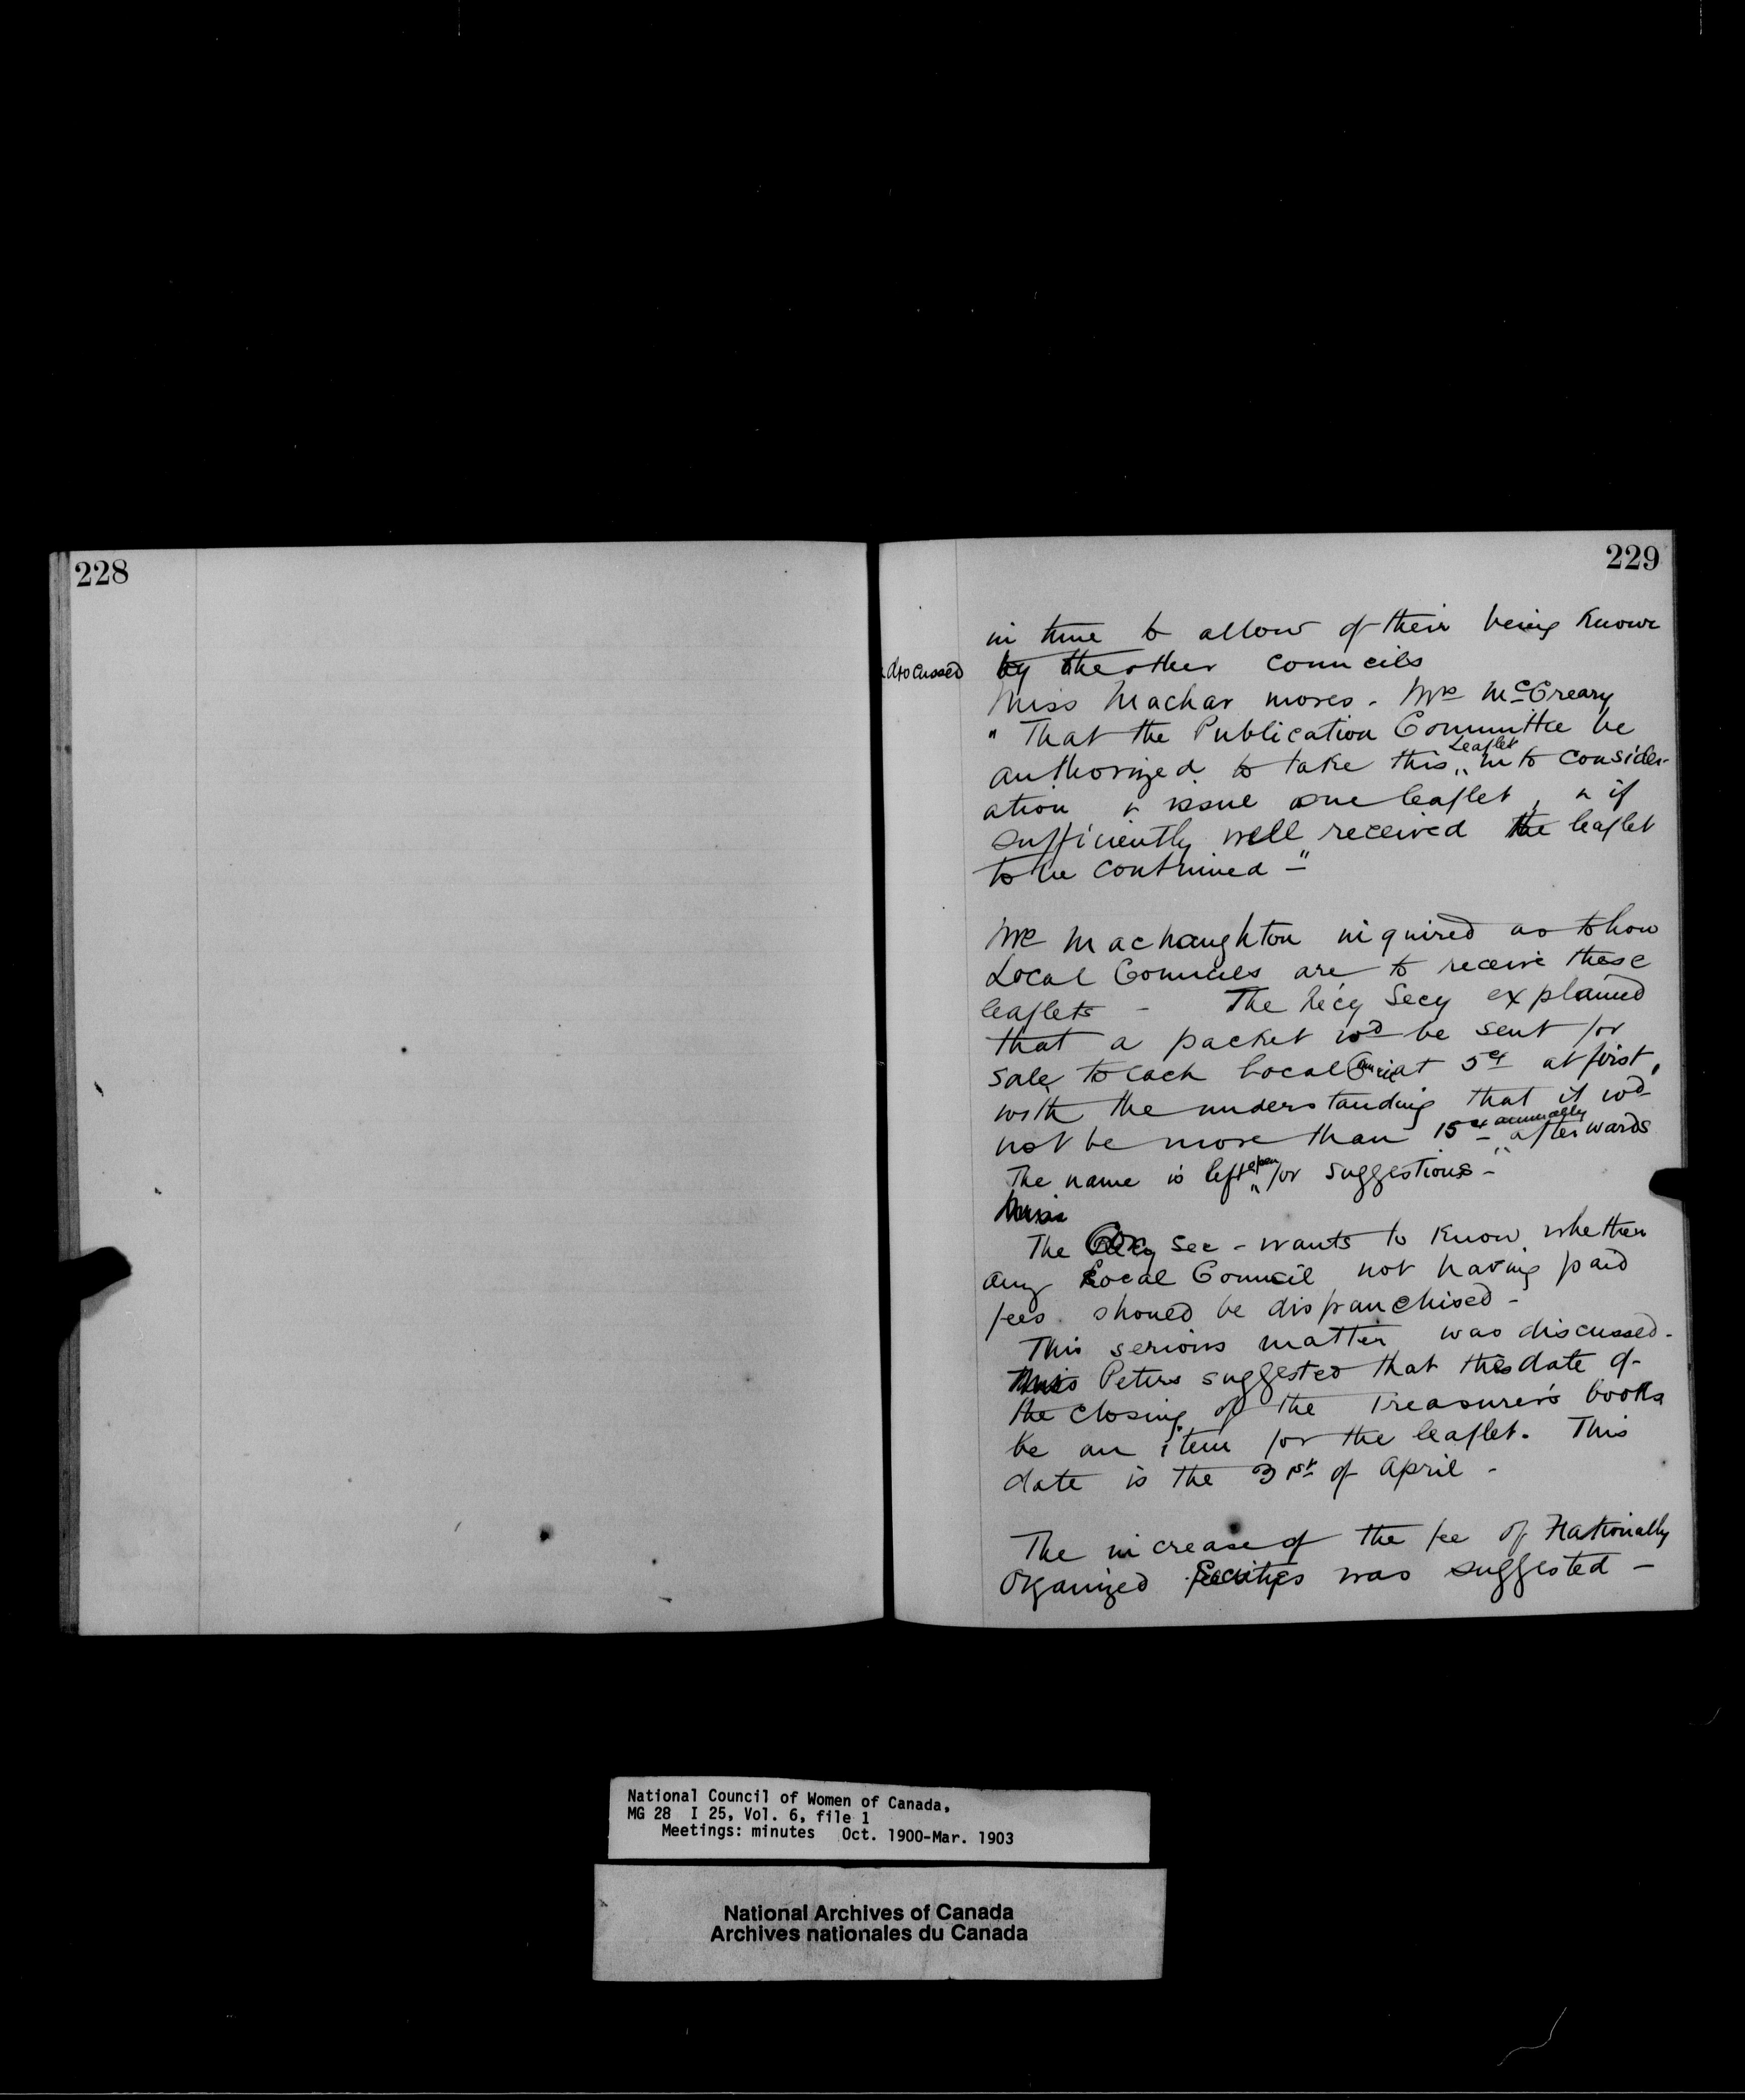 228
229
in time to allow of their being known
& discussed by the other Councils
Miss Machar moves - Mrs McCreary
" That the Publication Committee be
authorized to take this Leaflet into consider-
ation & issue one leaflet, & if
sufficiently well received the leaflet
to be continued - "
Mrs Macnaughton inquired as to how
Local Councils are to receive these
leaflets - The Recy Secy explained
that a packet wd be sent for
sale to each Local Council at 5ct at first,
with the understanding that it wd
not be more than 15ct annually afterwards
The name is left open for suggestions -
Miss
The Cor Sec - wants to know whether
any Local Council not having paid
fees should be disfranchised -
This serious matter was discussed -
Miss Peters suggested that the date of
the closing of the Treasurer's books
be an item for the leaflet. This
date is the 31st of April -
The increase of the fee of Nationally
Organized Societies was suggested -
National Council of Women of Canada,
MG 28 I 25, Vol. 6, file 1
Meetings: minutes Oct. 1900-Mar. 1903
National Archives of Canada
Archives nationales du Canada